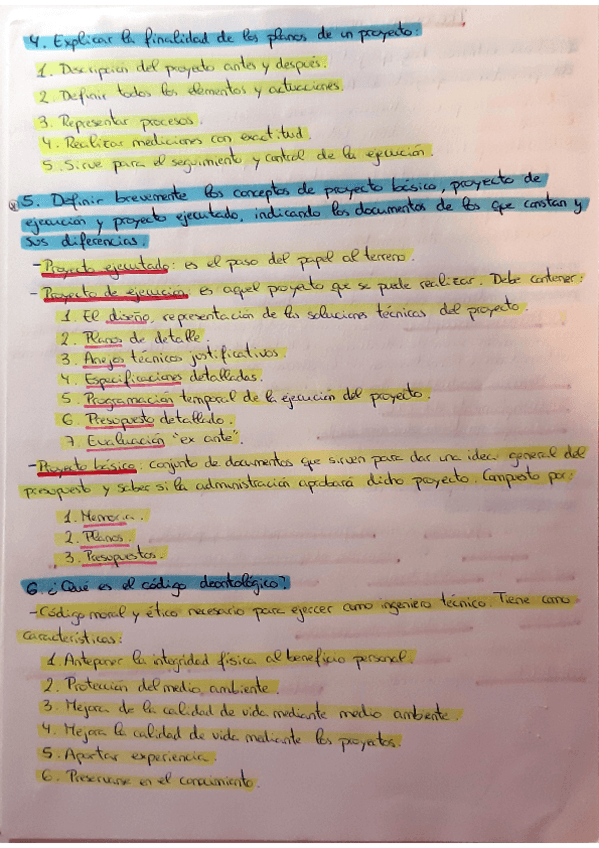 4. Explicar la finalidad de los planos de un proyecto:
1. Descripción del proyecto antes y después.
2. Definir todos los elementos y actuaciones.
3. Representar procesos.
4. Realizar mediciones con exactitud.
5. Sirve para el seguimiento y control de la ejecución.
5. Definir brevemente los conceptos de proyecto básico, proyecto de
ejecución y proyecto ejecutado, indicando los documentos de los que constan y
sus diferencias.
- Proyecto ejecutado: es el paso del papel al terreno.
- Proyecto de ejecución: es aquel proyecto que se puede realizar. Debe contener:
1. El diseño, representación de las soluciones técnicas del proyecto.
2. Planos de detalle.
3. Anejos técnicos justificativos.
4. Especificaciones detalladas.
5. Programación temporal de la ejecución del proyecto.
6. Presupuesto detallado.
7. Evaluación "ex ante".
- Proyecto básico: conjunto de documentos que sirven para dar una idea general del
presupuesto y saber si la administración aprobará dicho proyecto. Compuesto por:
1. Memoria.
2. Planos.
3. Presupuestos.
6. ¿Qué es el código deontológico?
- Código moral y ético necesario para ejercer como ingeniero técnico. Tiene como
características:
1. Anteponer la integridad física al beneficio personal.
2. Protección del medio ambiente.
3. Mejora de la calidad de vida mediante medio ambiente.
4. Mejora la calidad de vida mediante los proyectos.
5. Aportar experiencia.
6. en el conocimiento.